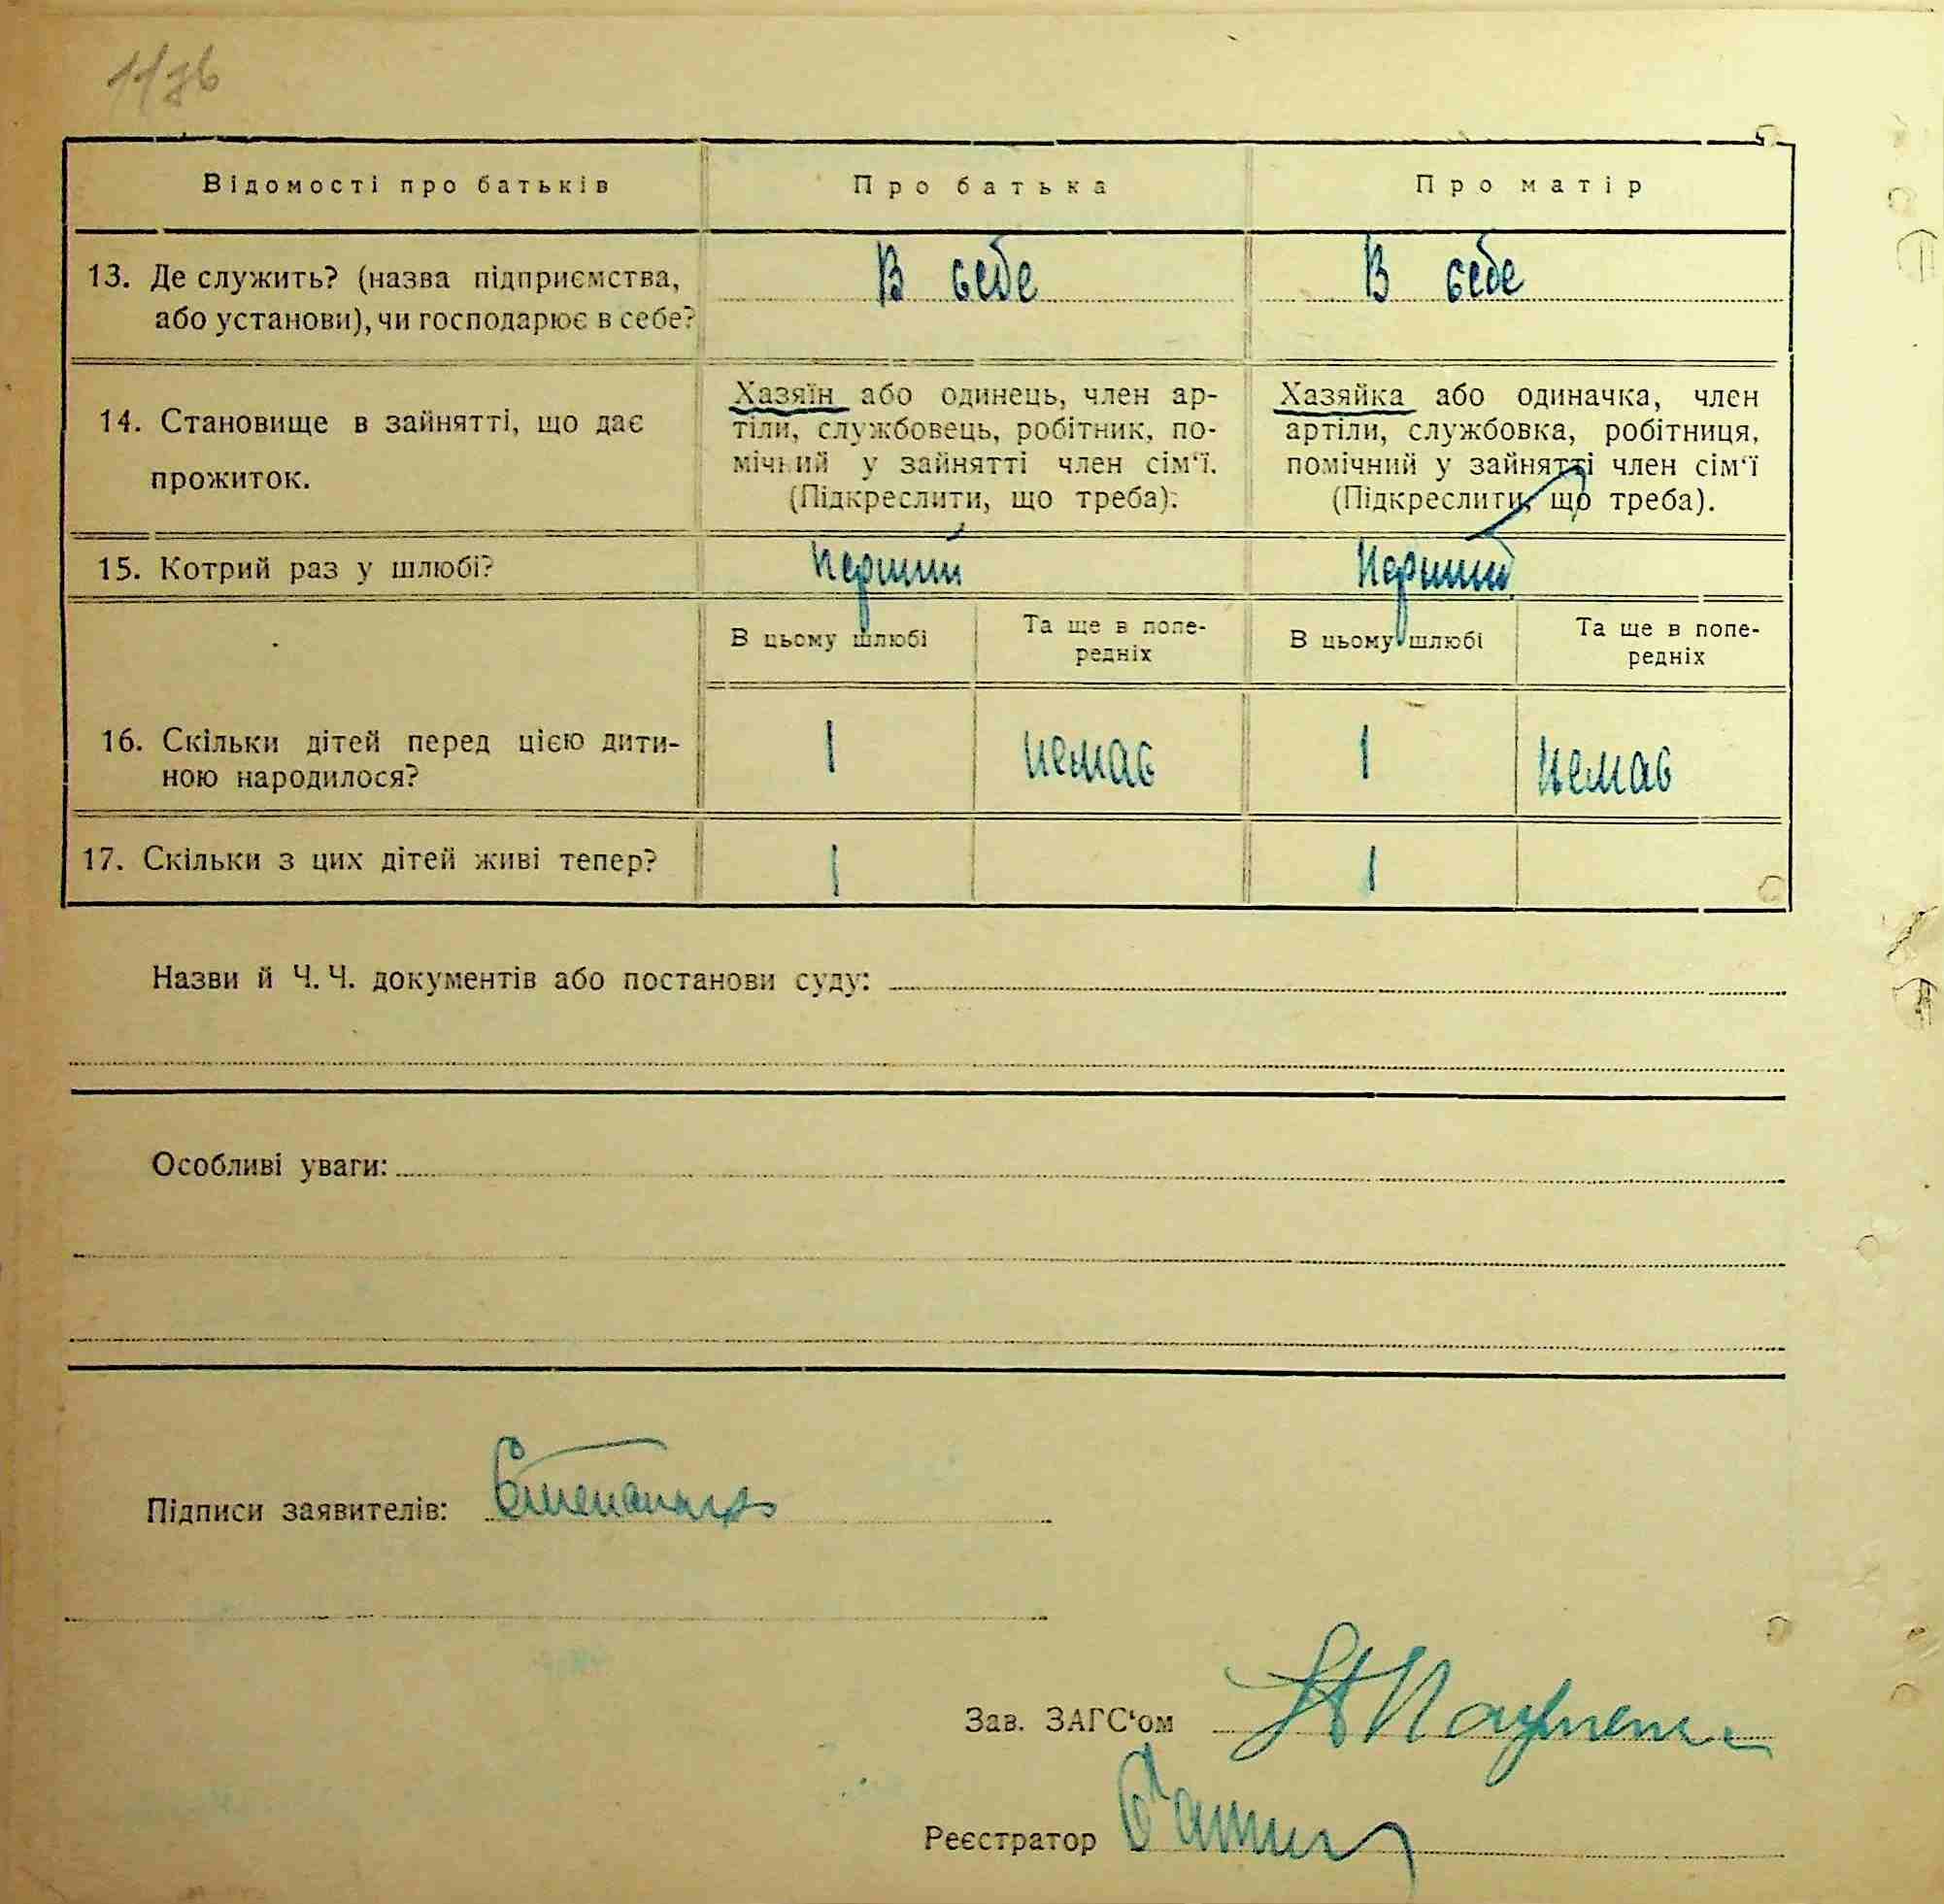 Відомості про батьків Про батька Про матір
13. Де служить? (назва підприємства, В себе В себе
або установи), чи господарює в себе?
14. Становище в зайнятті, що дає прожиток.
Хазяїн або одинець, член ар-
тіли, службовець, робітник, по-
мічний у зайнятті член сім'ї.
(Підкреслити, що треба).
Хазяйка або одиначка, член
артіли, службовка, робітниця,
помічний у зайнятті член сім'ї
(Підкреслити, що треба).
15. Котрий раз у шлюбі? перший перший
В цьому шлюбі Та ще в попе-
редніх В цьому шлюбі Та ще в попе-
редніх
16. Скільки дітей перед цією дити-
ною народилося? 1 немає 1 немає
17. Скільки з цих дітей живі тепер? 1 1
Назви й Ч. Ч. документів або постанови суду:
Особливі уваги:
Підписи заявителів:
Зав. ЗАГС'ом
Реєстратор